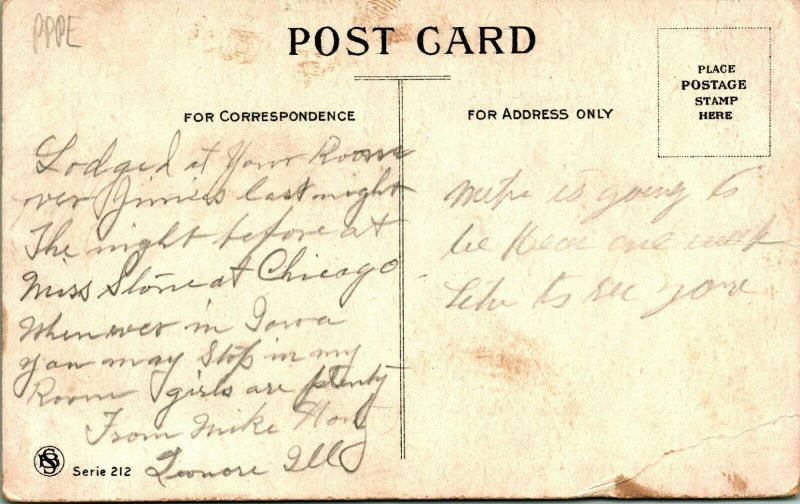 PPPE
POST CARD
PLACE
POSTAGE
STAMP
HERE
FOR CORRESPONDENCE
FOR ADDRESS ONLY
Lodged at Your Room
over last night
The night before at
Miss Stone at Chicago
When ever in Iowa
you may Stop in my
Room girls are plenty
From Mike
Ill
Serie 212
is going to
be Hear one
Like to see you